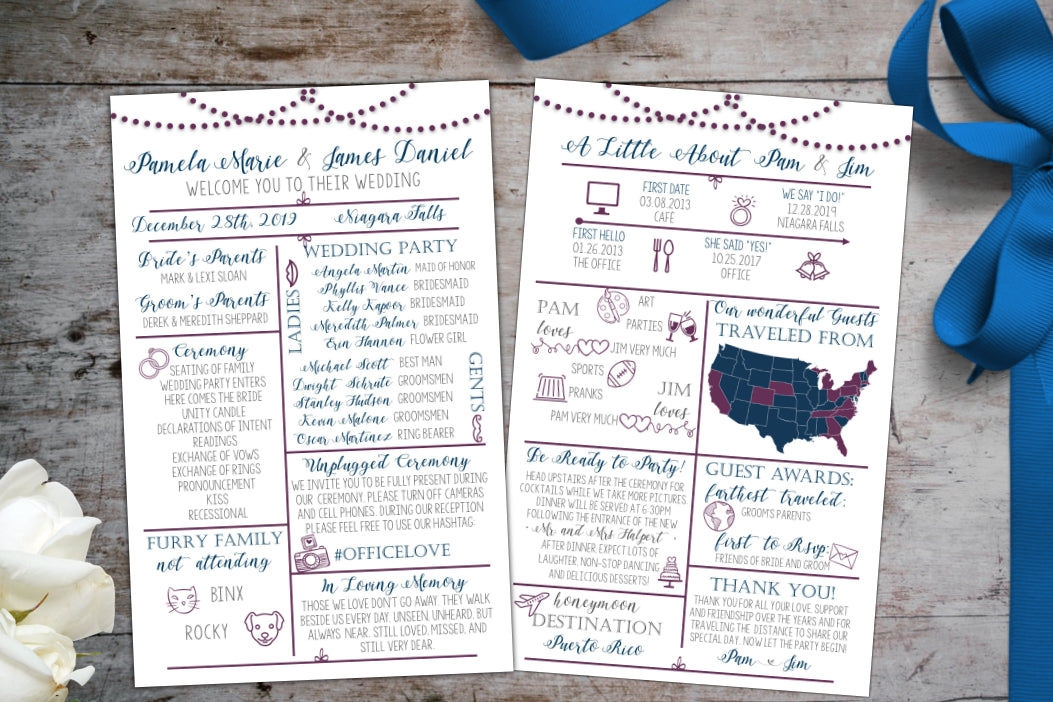 Pamela Marie & James Daniel
WELCOME YOU TO THEIR WEDDING
December 28th, 2019
Niagara Falls
Bride's Parents
MARK & LEXI SLOAN
Groom's Parents
DEREK & MEREDITH SHEPPARD
Ceremony
SEATING OF FAMILY
WEDDING PARTY ENTERS
HERE COMES THE BRIDE
UNITY CANDLE
DECLARATIONS OF INTENT
READINGS
EXCHANGE OF VOWS
EXCHANGE OF RINGS
PRONOUNCEMENT
KISS
RECESSIONAL
FURRY FAMILY
not attending
BINX
ROCKY
WEDDING PARTY
LADIES
Angela Martin MAID OF HONOR
Phyllis Vance BRIDESMAID
Kelly Kapoor BRIDESMAID
Meredith Palmer BRIDESMAID
Erin Hannon FLOWER GIRL
GENTS
Michael Scott BEST MAN
Dwight Schrute GROOMSMEN
Stanley Hudson GROOMSMEN
Kevin Malone GROOMSMEN
Oscar Martinez RING BEARER
Unplugged Ceremony
WE INVITE YOU TO BE FULLY PRESENT DURING
OUR CEREMONY. PLEASE TURN OFF CAMERAS
AND CELL PHONES. DURING OUR RECEPTION
PLEASE FEEL FREE TO USE OUR HASHTAG:
#OFFICELOVE
In Loving Memory
THOSE WE LOVE DON'T GO AWAY, THEY WALK
BESIDE US EVERY DAY. UNSEEN, UNHEARD, BUT
ALWAYS NEAR, STILL LOVED, MISSED, AND
STILL VERY DEAR.
A Little About Pam & Jim
FIRST DATE
03.08.2013
CAFÉ
WE SAY "I DO!"
12.28.2019
NIAGARA FALLS
FIRST HELLO
01.26.2013
THE OFFICE
SHE SAID "YES!"
10.25.2017
OFFICE
PAM
loves
ART
PARTIES
JIM VERY MUCH
JIM
loves
SPORTS
PRANKS
PAM VERY MUCH
Our wonderful Guests
TRAVELED FROM
Be Ready to Party!
HEAD UPSTAIRS AFTER THE CEREMONY FOR
COCKTAILS WHILE WE TAKE MORE PICTURES
DINNER WILL BE SERVED AT 6:30PM
FOLLOWING THE ENTRANCE OF THE NEW
• Mr and Mrs Halpert •
AFTER DINNER, EXPECT LOTS OF
LAUGHTER, NON-STOP DANCING
AND DELICIOUS DESSERTS!
honeymoon
DESTINATION
Puerto Rico
GUEST AWARDS:
farthest traveled:
GROOMS PARENTS
first to Rsvp:
FRIENDS OF BRIDE AND GROOM
THANK YOU!
THANK YOU FOR ALL YOUR LOVE, SUPPORT
AND FRIENDSHIP OVER THE YEARS AND FOR
TRAVELING THE DISTANCE TO SHARE OUR
SPECIAL DAY. NOW LET THE PARTY BEGIN!
Pam Jim